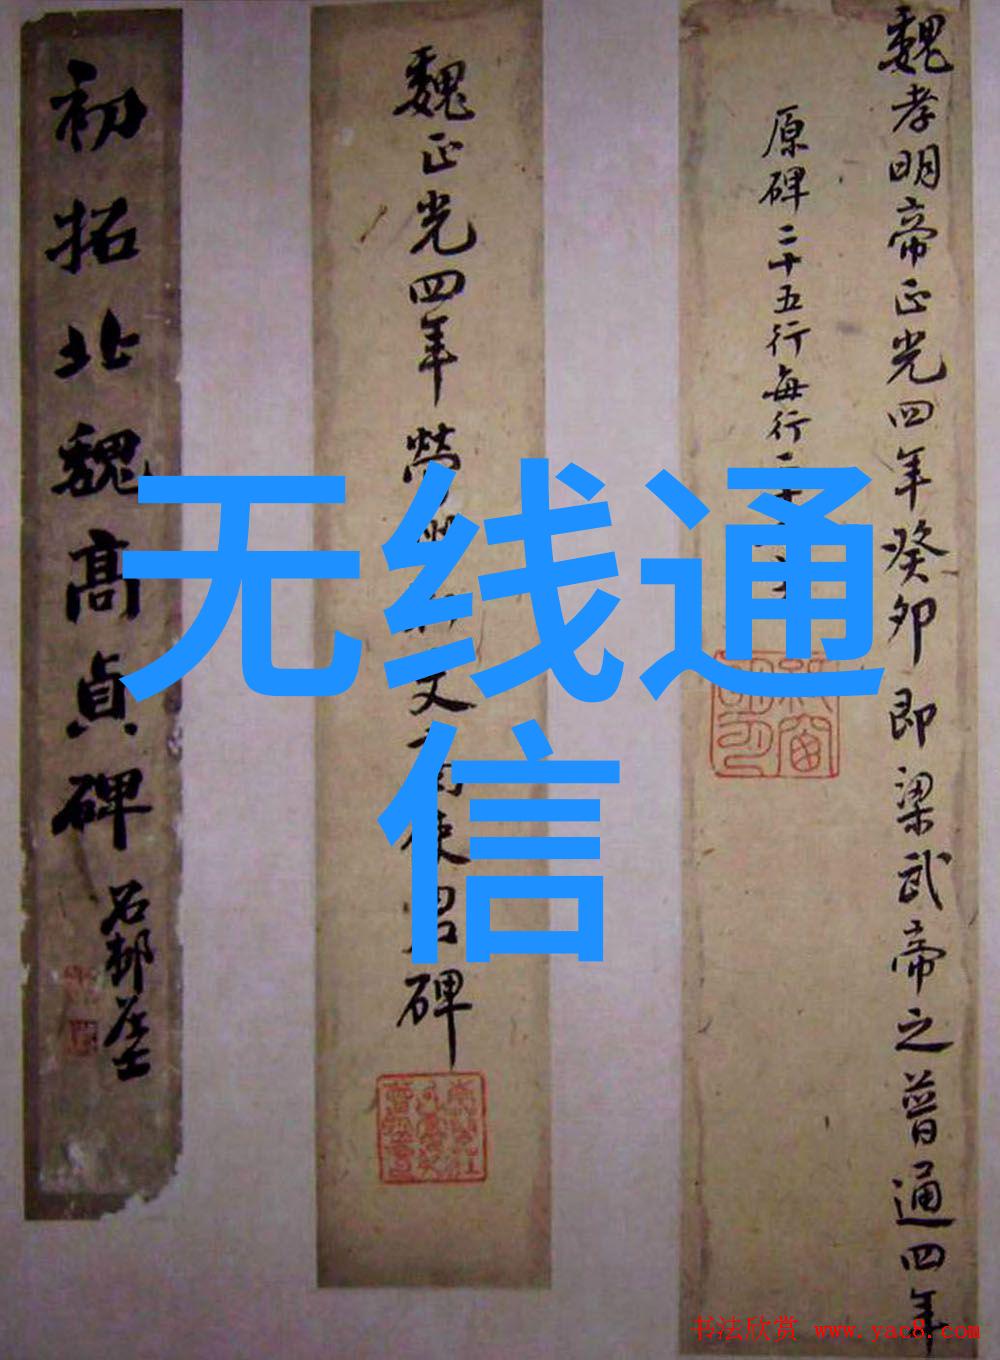 魏孝明帝正光四年癸卯即梁武帝之普通四年
原碑二十五行每行二十
魏正光四年營州文碑
初拓北魏高貞碑
石邨居士
无线通
信
书法欣赏 www.yac8.com